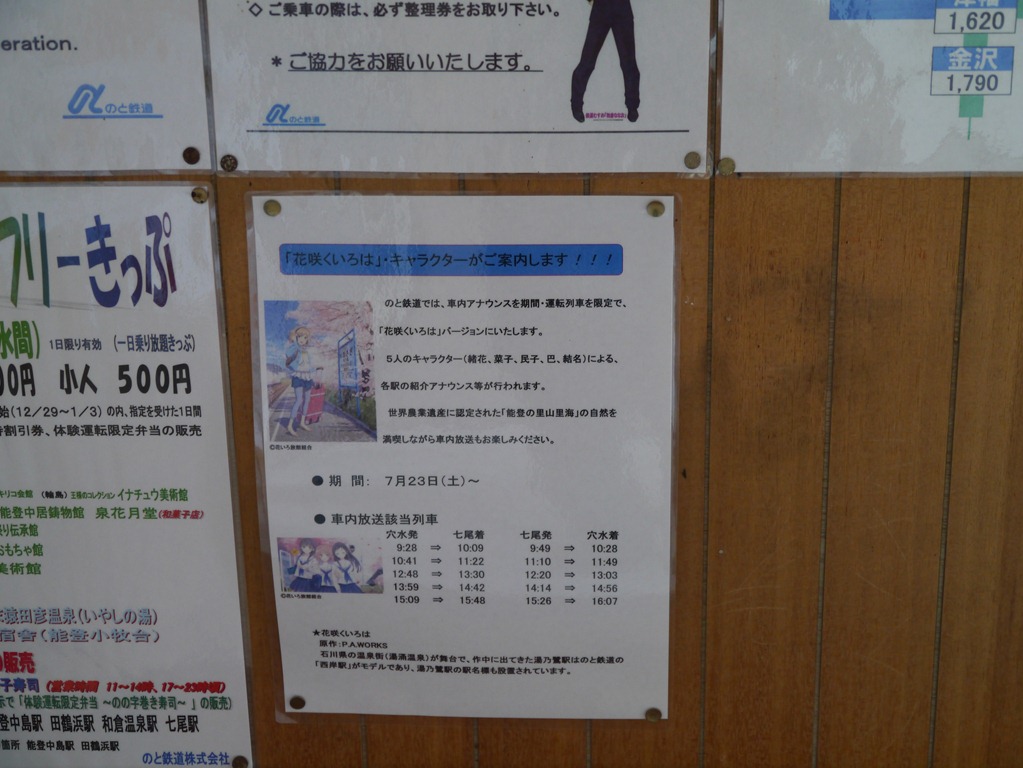 eration.
のと鉄道
◇ご乗車の際は、必ず整理券をお取り下さい。
＊ご協力をお願いいたします。
のと鉄道
1,620
金沢
1,790
フリーきっぷ
水間) 1日限り有効 (一日乗り放題きっぷ)
00円 小人 500円
始(12/29～1/3)の内、指定を受けた1日間
割引券、体験運転限定弁当の販売
キリコ会館 (輪島) 王様のコレクション イナチュウ美術館
能登中居鋳物館 泉花月堂(和菓子店)
り伝承館
おもちゃ館
美術館
猿田彦温泉(いやしの湯)
宿舎(能登小牧台)
の販売
子寿司 (営業時間 11～14時、17～23時頃)
示で「体験運転限定弁当 ～のの字巻き寿司～」の販売)
登中島駅 田鶴浜駅 和倉温泉駅 七尾駅
箇所 能登中島駅 田鶴浜駅
のと鉄道株式会社
「花咲くいろは」・キャラクターがご案内します！！！
のと鉄道では、車内アナウンスを期間・運転列車を限定で、
「花咲くいろは」バージョンにいたします。
5人のキャラクター(緒花、菜子、民子、巴、結名)による、
各駅の紹介アナウンス等が行われます。
世界農業遺産に認定された「能登の里山里海」の自然を
満喫しながら車内放送もお楽しみください。
©花いろ旅館組合
●期 間： 7月23日(土)～
●車内放送該当列車
穴水発 七尾着 七尾発 穴水着
9:28 ⇒ 10:09 9:49 ⇒ 10:28
10:41 ⇒ 11:22 11:10 ⇒ 11:49
12:48 ⇒ 13:30 12:20 ⇒ 13:03
13:59 ⇒ 14:42 14:14 ⇒ 14:56
15:09 ⇒ 15:48 15:26 ⇒ 16:07
©花いろ旅館組合
★花咲くいろは
原作：P.A.WORKS
石川県の温泉街(湯涌温泉)が舞台で、作中に出てきた湯乃鷺駅はのと鉄道の
「西岸駅」がモデルであり、湯乃鷺駅の駅名標も設置されています。